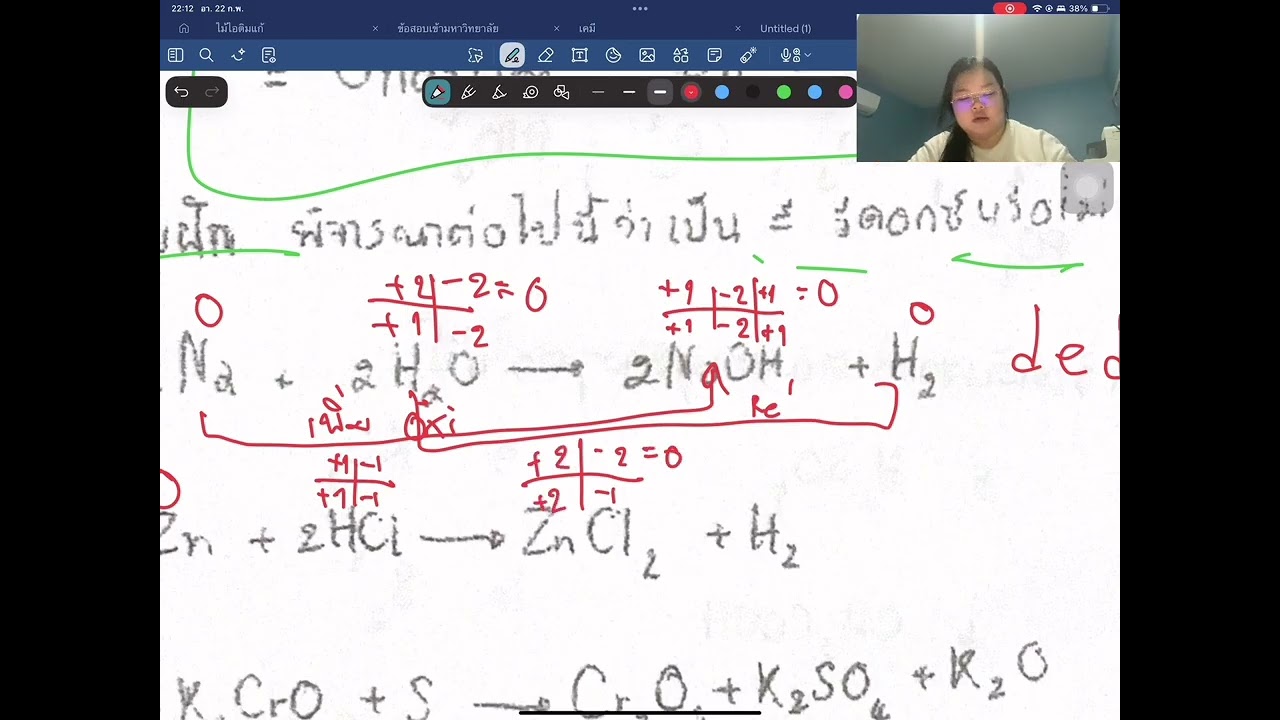 22:12 อา. 22 ก.พ. 38%
ไม้ไอติมแก้ × ข้อสอบเข้ามหาวิทยาลัย × เคมี × Untitled (1)
พิจารณาต่อไปนี้ว่าเป็น รีดอกซ์หรือไม่
0 +2 | -2 = 0 +1 | -2 | +1 = 0 0
+1 | -2 +1 | -2 | +1
N2 + 2H2O → 2NaOH + H2 ded
เพิ่ม Oxi Re
+1 | -1 +2 | -2 = 0
0 +1 | -1 +2 | -1
Zn + 2HCl → ZnCl2 + H2
K CrO + S → Cr2O + K2SO4 + K2O